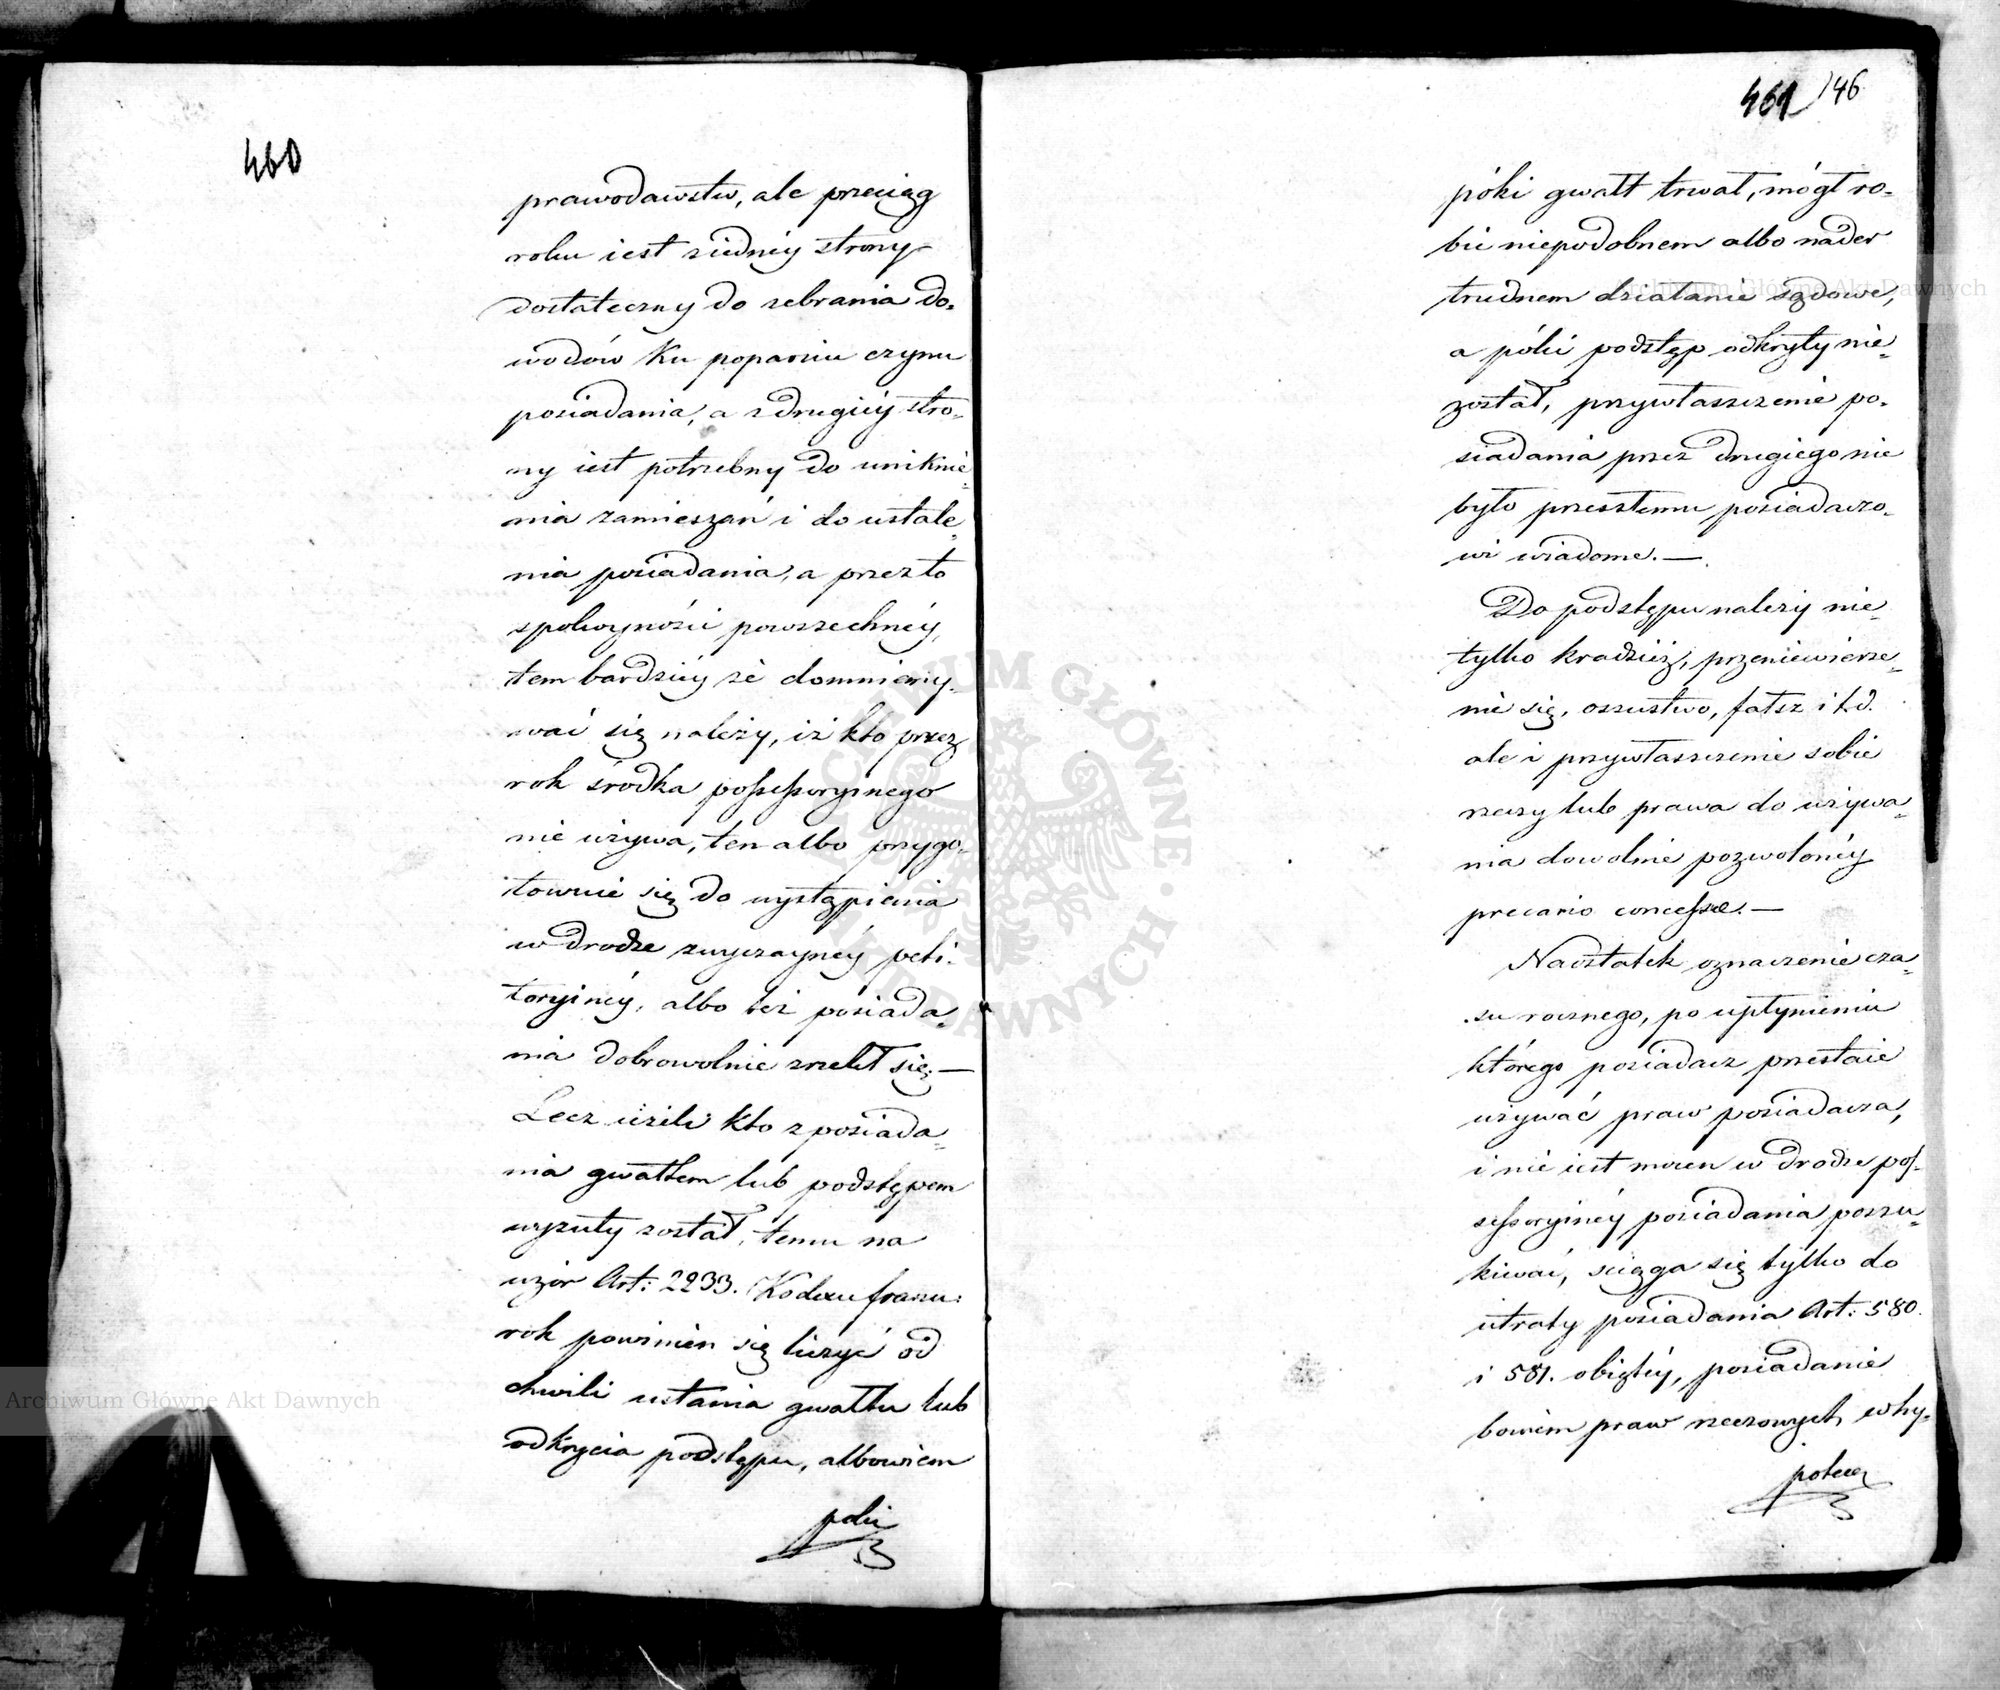 460
prawodawstw, ale przeciąg
roku iest ziednéy strony
dostateczny do zebrania do-
wodów ku poparciu czynu
posiadania, a zdrugiéy stro-
ny iest potrzebny do uniknie-
nia zamieszań i do ustale-
nia posiadania, a przezto
spokoyności powszechnéy,
tem bardziéy że domniemy-
wać się należy, iż kto przez
rok środka possessoryinego
nie używa, ten albo przygo-
towuie się do wystąpienia
w drodze zwyczaynéy peti-
toryinéy, albo też posiada-
nia dobrowolnie zrzekł się. —
Lecz ieżeli kto z posiada-
nia gwałtem lub podstępem
wyzuty został, temu na
wzór Art: 2233. Kodexu francu:
rok powinien się liczyć od
chwili ustania gwałtu lub
odkrycia podstępu, albowiem
póki
461 146
póki gwałt trwał, mógł ro-
bić niepodobnem albo nader
trudnem działanie sądowe,
a póki podstęp odkryty nie-
został, przywłaszczenie po-
siadania przez drugiego nie
było przeszłemu posiadaczo-
wi wiadome. —
Do podstępu należy nie-
tylko kradzież, przeniewierze-
nie się, oszustwo, fałsz i t.d.
ale i przywłaszczenie sobie
rzeczy lub prawa do używa-
nia dowolnie pozwolonéy
precario concessae. —
Naostatek oznaczenie cza-
su rocznego, po upłynieniu
którego posiadacz przestaie
używać praw posiadacza,
i nie iest mocen w drodze pos-
sessoryinéy posiadania poszu-
kiwać, ściąga się tylko do
utraty posiadania Art: 580.
i 581. obiętéy, posiadanie
bowiem praw rzeczowych, w hy-
potece
Archiwum Główne Akt Dawnych
Archiwum Główne Akt Dawnych
ARCHIWUM GŁÓWNE AKT DAWNYCH